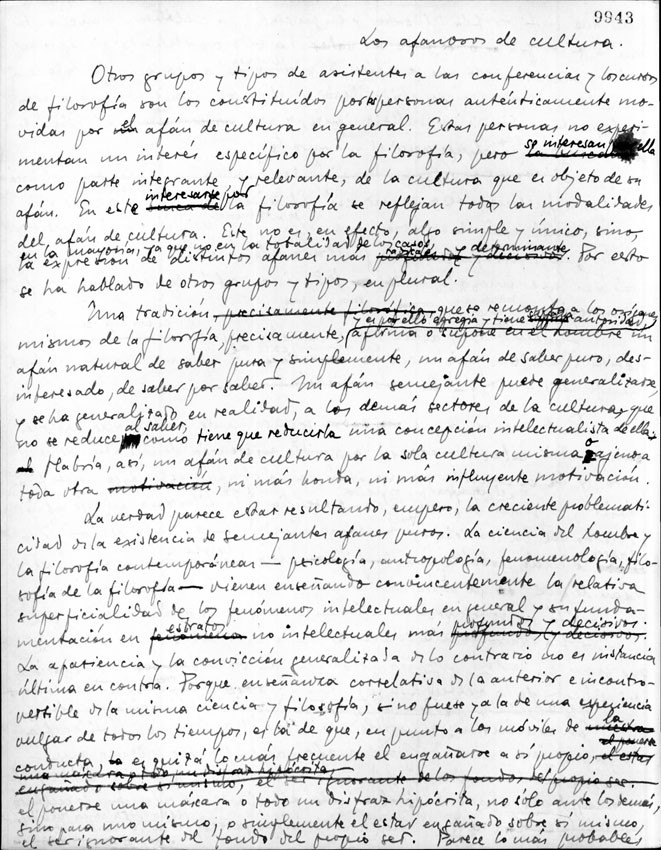 9943
Los afanosos de cultura.
Otros grupos y tipos de asistentes a las conferencias y los cursos
de filosofía son los constituídos por personas auténticamente mo-
vidas por el afán de cultura en general. Estas personas no experi-
mentan un interés específico por la filosofía, pero se interesan por ella
como parte integrante, y relevante, de la cultura que es objeto de su
afán. En este interesarse por la filosofía se reflejan todas las modalidades
del afán de cultura. Este no es, en efecto, algo simple y único, sino,
en la mayoría, ya que no en la totalidad de los casos,
la expresión de distintos afanes más radicales y determinantes. Por esto
se ha hablado de otros grupos y tipos, en plural.
Una tradición, precisamente filosófica, que se remonta a los orígenes
mismos de la filosofía, precisamente, y es por ello egregia y tiene autoridad,
afirma o supone en el hombre un
afán natural de saber pura y simplemente, un afán de saber puro, des-
interesado, de saber por saber. Un afán semejante puede generalizarse,
y se ha generalizado en realidad, a los demás sectores de la cultura, que
no se reduce al saber, como tiene que reducirla una concepción intelectualista de ella.
Habría, así, un afán de cultura por la sola cultura misma o ajeno a
toda otra motivación, ni más honda, ni más influyente motivación.
La verdad parece estar resultando, empero, la creciente problemati-
cidad de la existencia de semejantes afanes puros. La ciencia del hombre y
la filosofía contemporáneas — psicología, antropología, fenomenología, filo-
sofía de la filosofía — vienen enseñando convincentemente la relativa
superficialidad de los fenómenos intelectuales en general y su funda-
mentación en estratos no intelectuales más profundos y decisivos.
La apariencia y la convicción generalizada de lo contrario no es instancia
última en contra. Porque enseñanza correlativa de la anterior e incontro-
vertible de la misma ciencia y filosofía, si no fuese ya la de una experiencia
vulgar de todos los tiempos, es la de que, en punto a los móviles de la
conducta, es quizá lo más frecuente el engañarse a sí propio,
el ponerse una máscara o todo un disfraz hipócrita, no sólo ante los demás,
sino para uno mismo; o simplemente el estar engañado sobre sí mismo,
el ser ignorante del fondo del propio ser. Parece lo más probable